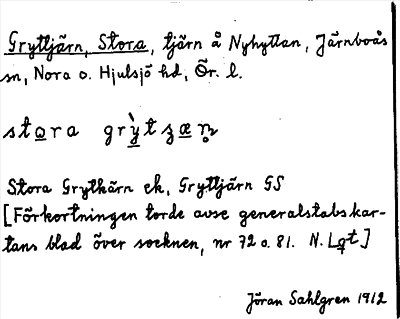 Gryttjärn, Stora, tjärn å Nyhyttan, Järnboås
sn, Nora o. Hjulsjö hd, Ör. l.
stora grỳtzæn̥
Stora Grytkärn ek, Gryttjärn GS
[Förkortningen torde avse generalstabskar-
tans blad över socknen, nr 72 o. 81. N. Lqt]
Jöran Sahlgren 1912